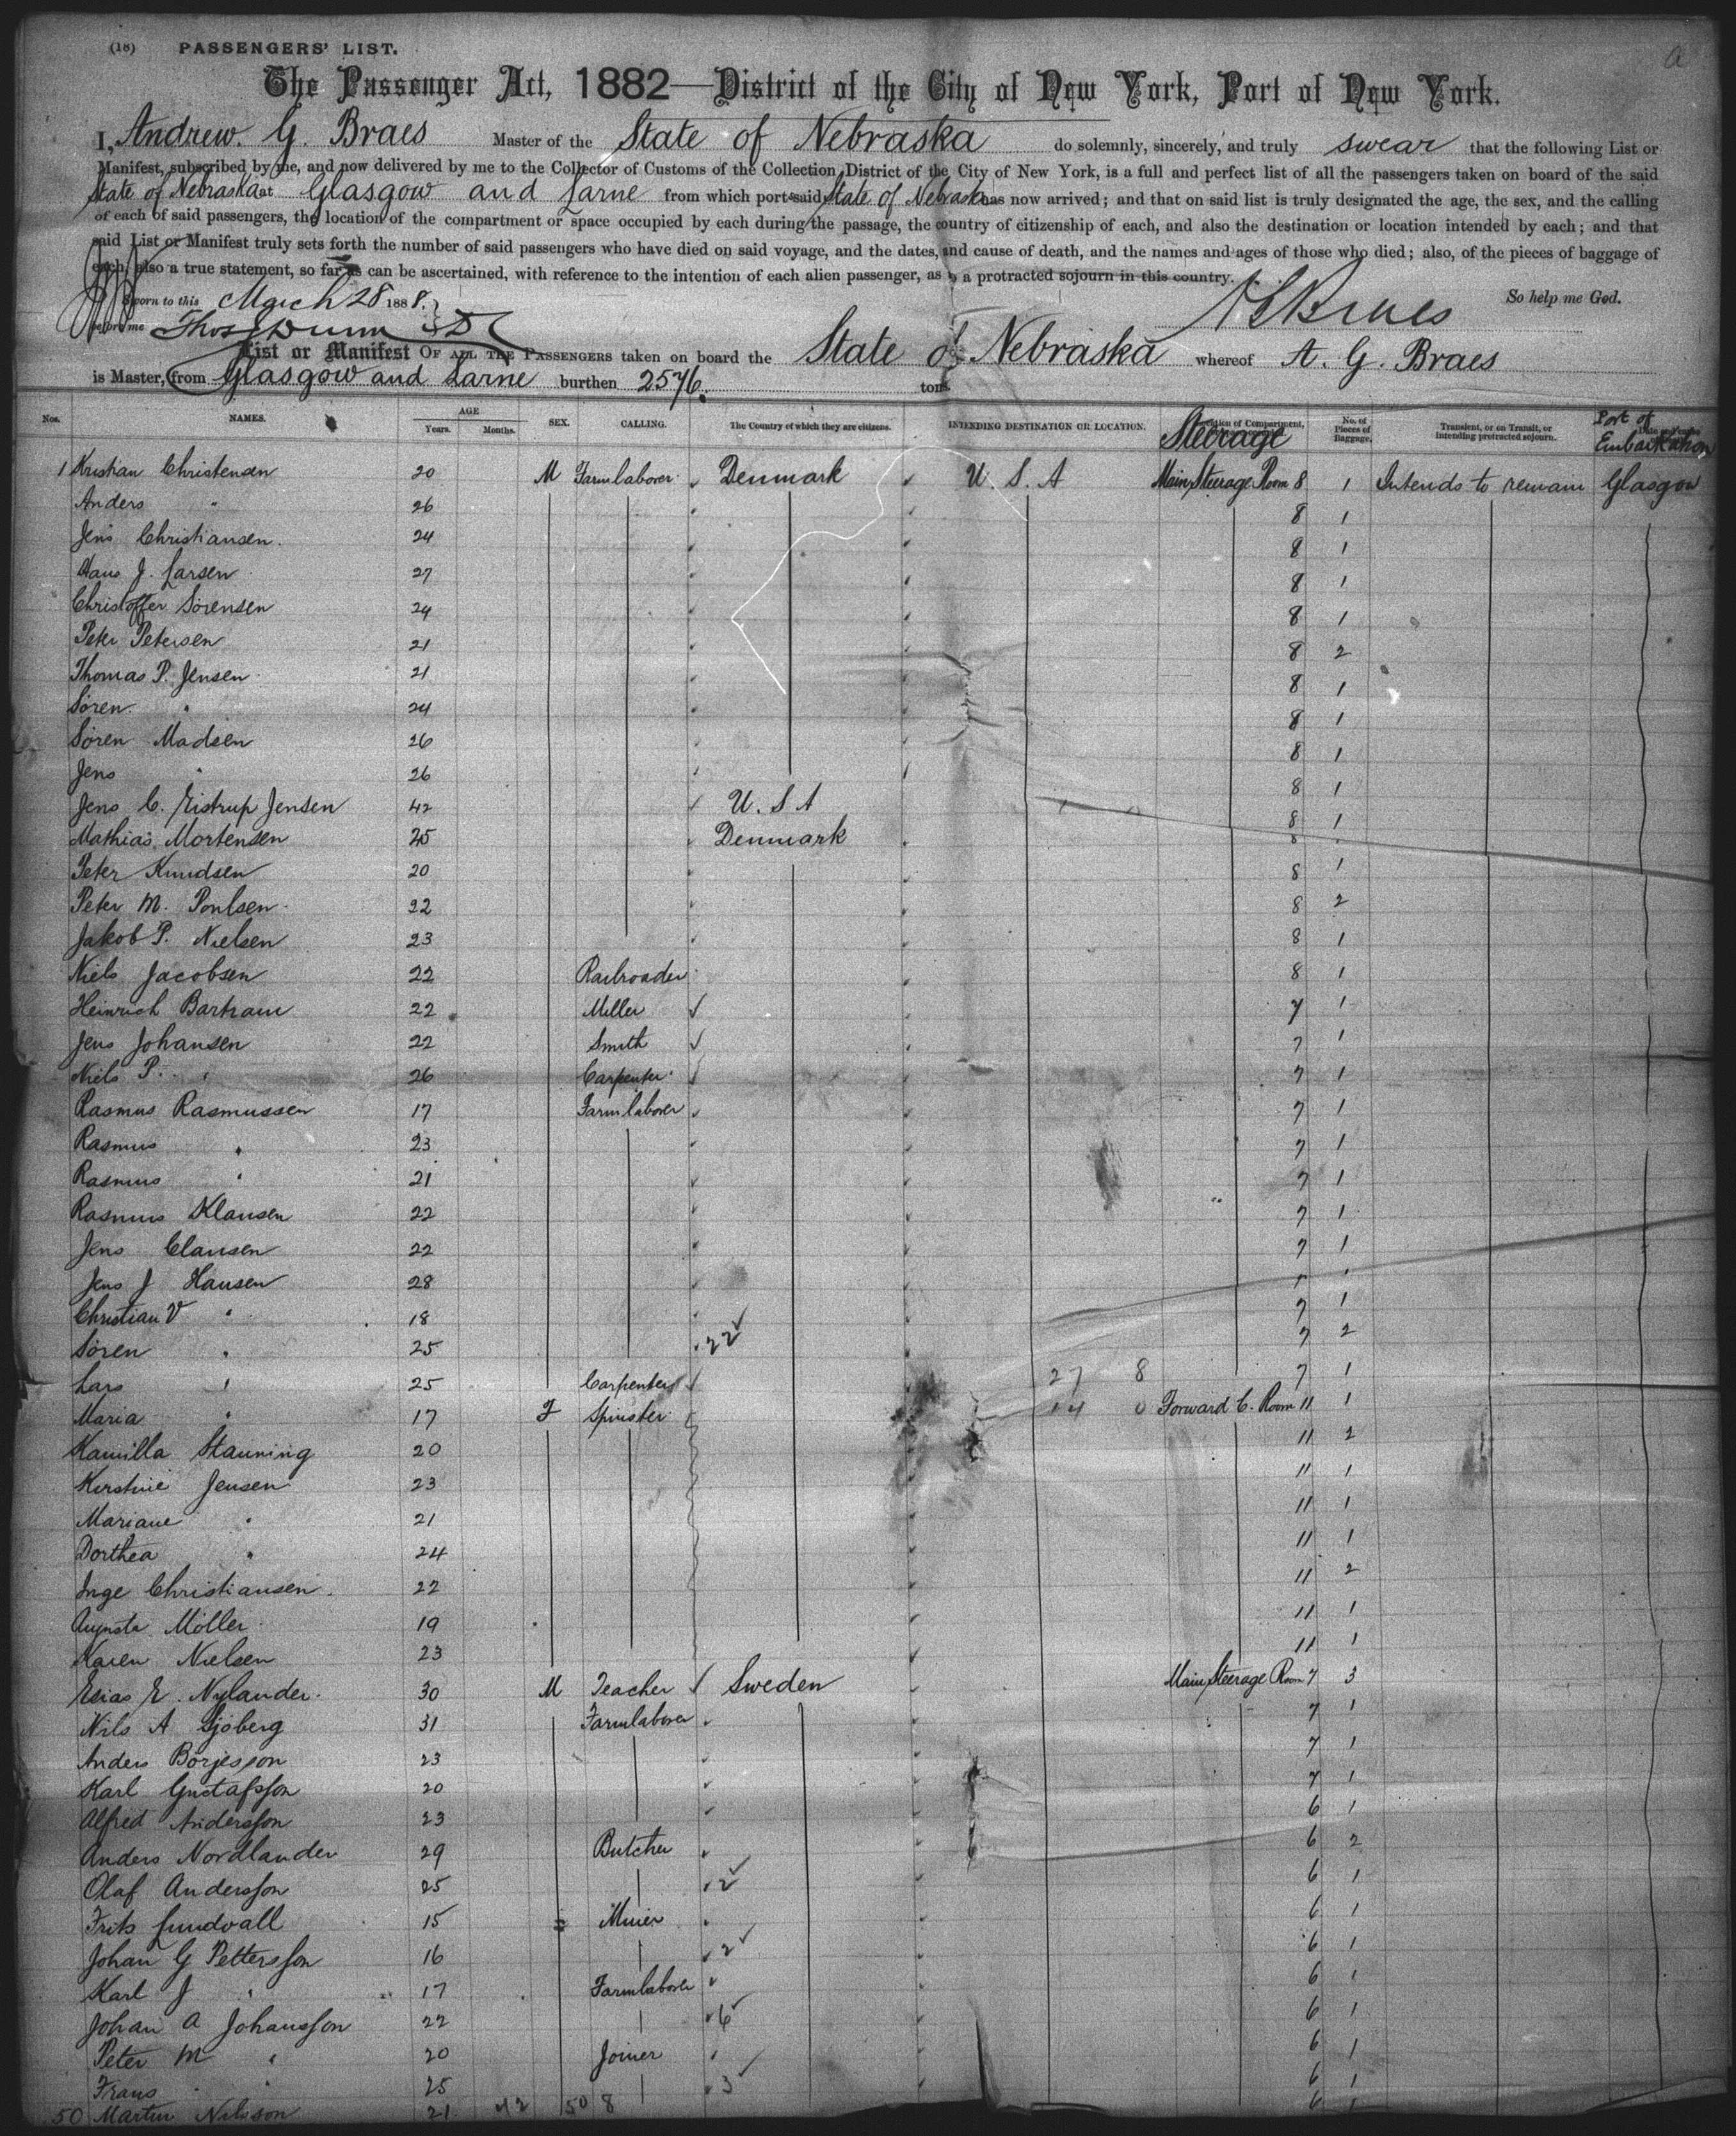 (18) PASSENGERS' LIST.
The Passenger Act, 1882—District of the City of New York, Port of New York.
I, Andrew. G. Braes Master of the State of Nebraska do solemnly, sincerely, and truly swear that the following List or
Manifest, subscribed by me, and now delivered by me to the Collector of Customs of the Collection District of the City of New York, is a full and perfect list of all the passengers taken on board of the said
State of Nebraska at Glasgow and Larne from which port said State of Nebraska has now arrived; and that on said list is truly designated the age, the sex, and the calling
of each of said passengers, the location of the compartment or space occupied by each during the passage, the country of citizenship of each, and also the destination or location intended by each; and that
said List or Manifest truly sets forth the number of said passengers who have died on said voyage, and the dates, and cause of death, and the names and ages of those who died; also, of the pieces of baggage of
each, also a true statement, so far as can be ascertained, with reference to the intention of each alien passenger, as to a protracted sojourn in this country.
So help me God.
Sworn to this March 28 1888.
before me Thos Dunn
A G Braes
List or Manifest OF ALL THE PASSENGERS taken on board the State of Nebraska whereof A. G. Braes
is Master, from Glasgow and Larne burthen 2576. tons.
Nos. NAMES. AGE Years. Months. SEX. CALLING. The Country of which they are citizens. INTENDING DESTINATION OR LOCATION. Steerage No. of Pieces of Baggage. Transient, or on Transit, or intending protracted sojourn. Port of Embarkation
1 Kristian Christensen 20 M Farmlaborer Denmark U. S. A Main Steerage Room 8 1 Intends to remain Glasgow
Anders " 26 8 1
Jens Christiansen. 24 8 1
Hans J. Larsen 27 8 1
Christoffer Sörensen 24 8 1
Peter Petersen 21 8 2
Thomas P. Jensen 21 8 1
Sören " 24 8 1
Sören Madsen 26 8 1
Jens " 26 8 1
Jens C. Eistrup Jensen 42 U. S A 8 1
Mathias Mortensen 25 Denmark 8
Peter Knudsen 20 8 1
Peter M. Poulsen 22 8 2
Jakob P. Nielsen 23 8 1
Niels Jacobsen 22 Railroader 8 1
Heinrich Bartram 22 Miller 7 1
Jens Johansen 22 Smith 7 1
Niels P. " 26 Carpenter 7 1
Rasmus Rasmussen 17 Farmlaborer 7 1
Rasmus " 23 7 1
Rasmus " 21 7 1
Rasmus Klausen 22 7 1
Jens Clausen 22 7 1
Jens J Hansen 28
Christian V " 18 7 1
Sören " 25 22 7 2
Lars " 25 Carpenter 27 8 7 1
Maria " 17 F Spinster 14 0 Forward C. Room 11 1
Kamilla Stauning 20 11 2
Kirstine Jensen 23 11 1
Mariane " 21 11 1
Dorthea " 24 11 1
Inge Christiansen. 22 11 2
Augusta Möller 19 11 1
Karen Nielsen 23 11 1
Esias E. Nylander 30 M Teacher Sweden Main Steerage Room 7 3
Nils A Sjöberg 31 Farmlaborer 7 1
Anders Börjesson 23 7 1
Karl Gustafsson 20 7 1
Alfred Andersson 23 6 1
Anders Nordlander 29 Butcher 6 2
Olaf Andersson 25 2 6 1
Frits Lundvall 15 Miner 6 1
Johan G Pettersson 16 2 6 1
Karl J " 17 Farmlaborer 6 1
Johan A Johansson 22 6 6 1
Peter M " 20 Joiner 6 1
Frans " 25 3 6 1
50 Martin Nilsson 21 42 50 8 6 1